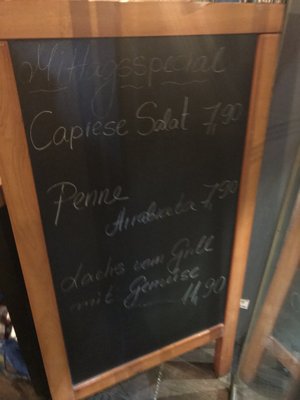 Mittagsspecial
Capiese Salat 7,90
Penne
Arrabiata 7,90
Lachs vom Grill
mit Gemüse
14,90